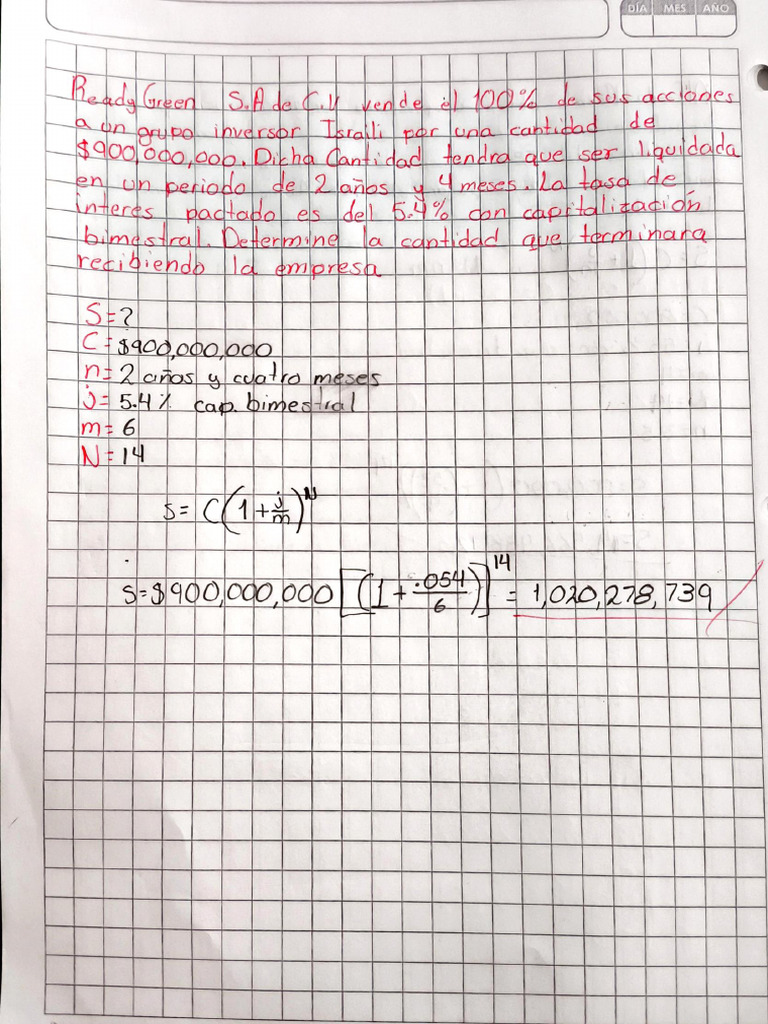 DÍA MES AÑO
ReadyGreen S.A de C.V vende el 100% de sus acciones
a un grupo inversor Israili por una cantidad de
$900,000,000. Dicha Cantidad tendra que ser liquidada
en un periodo de 2 años y 4 meses. La tasa de
interes pactado es del 5.4% con capitalización
bimestral. Determine la cantidad que terminara
recibiendo la empresa
S=?
C=$900,000,000
n=2 años y cuatro meses
j=5.4% cap. bimestral
m=6
N=14
s= C(1+j/m)^N
s=$900,000,000[(1+.054/6)]^14 = 1,020,278,739